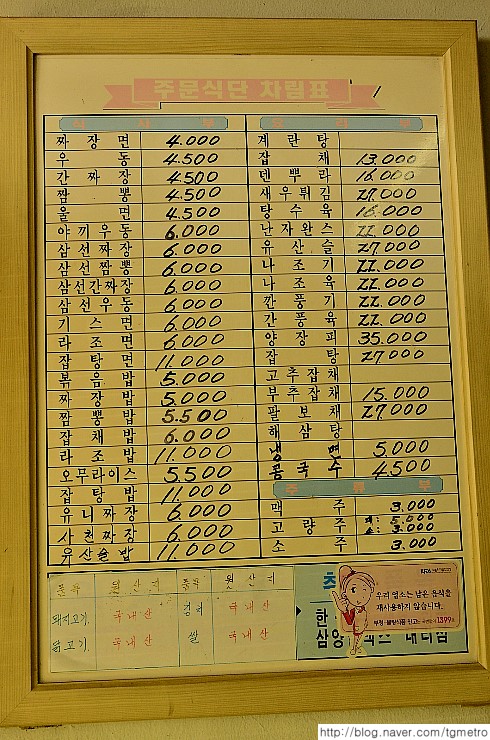 주문식단 차림표
식 사 부
짜 장 면 4.000
우 동 4.500
간 짜 장 4.500
짬 뽕 4.500
울 면 4.500
야끼우동 6.000
삼선짜장 6.000
삼선짬뽕 6.000
삼선간짜장 6.000
삼선우동 6.000
기 스 면 6.000
라 조 면 6.000
잡 탕 면 11.000
볶 음 밥 5.000
짜 장 밥 5.000
짬 뽕 밥 5.500
잡 채 밥 6.000
라 조 밥 11.000
오무라이스 5.500
잡 탕 밥 11.000
유니짜장 6.000
사천짜장 6.000
유산슬밥 11.000
요 리 부
계 란 탕
잡 채 13.000
덴 뿌 라 16.000
새우튀김 27.000
탕 수 육 16.000
난자완스 22.000
유 산 슬 27.000
라 조 기 22.000
라 조 육 22.000
깐 풍 기 22.000
간 풍 육 22.000
양 장 피 35.000
잡 탕 27.000
고추잡채
부추잡채 15.000
팔 보 채 27.000
해 삼 탕
냉 면 5.000
콩 국 수 4.500
주 류 부
맥 주 3.000
고 량 주 대: 5.000 소: 3.000
소 주 3.000
품목 원산지 품목 원산지
돼지고기 국내산 국내산
닭고기 국내산 쌀 국내산
우리 업소는 남은 음식을
재사용하지 않습니다.
부정·불량식품 신고는 국번없이 1399
한
삼양
http://blog.naver.com/tgmetro